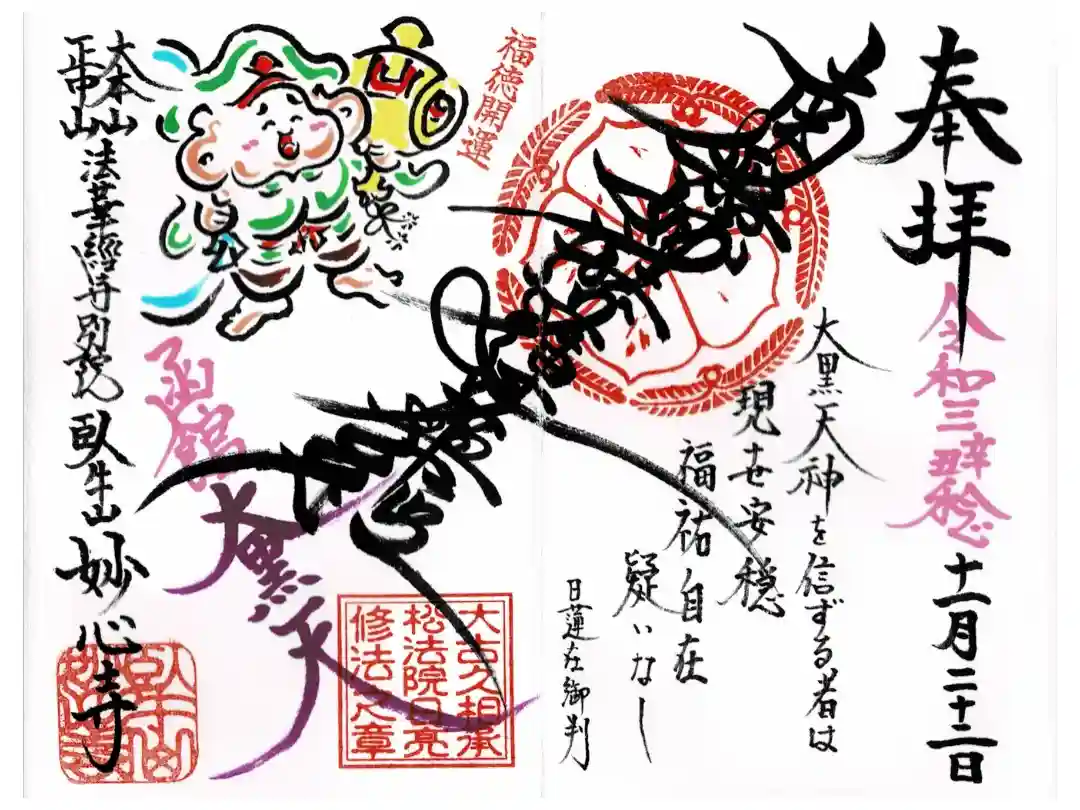 奉拝
令和三辛丑稔
十一月二十二日
大黒天神を信ずる者は
現世安穏
福祐自在
疑いなし
日蓮在御判
南無妙法蓮華経
福徳開運
大古久相承
松法院日亮
修法之章
函館
大黒天
大本山
正中山
法華經寺別院
臥牛山
妙心寺